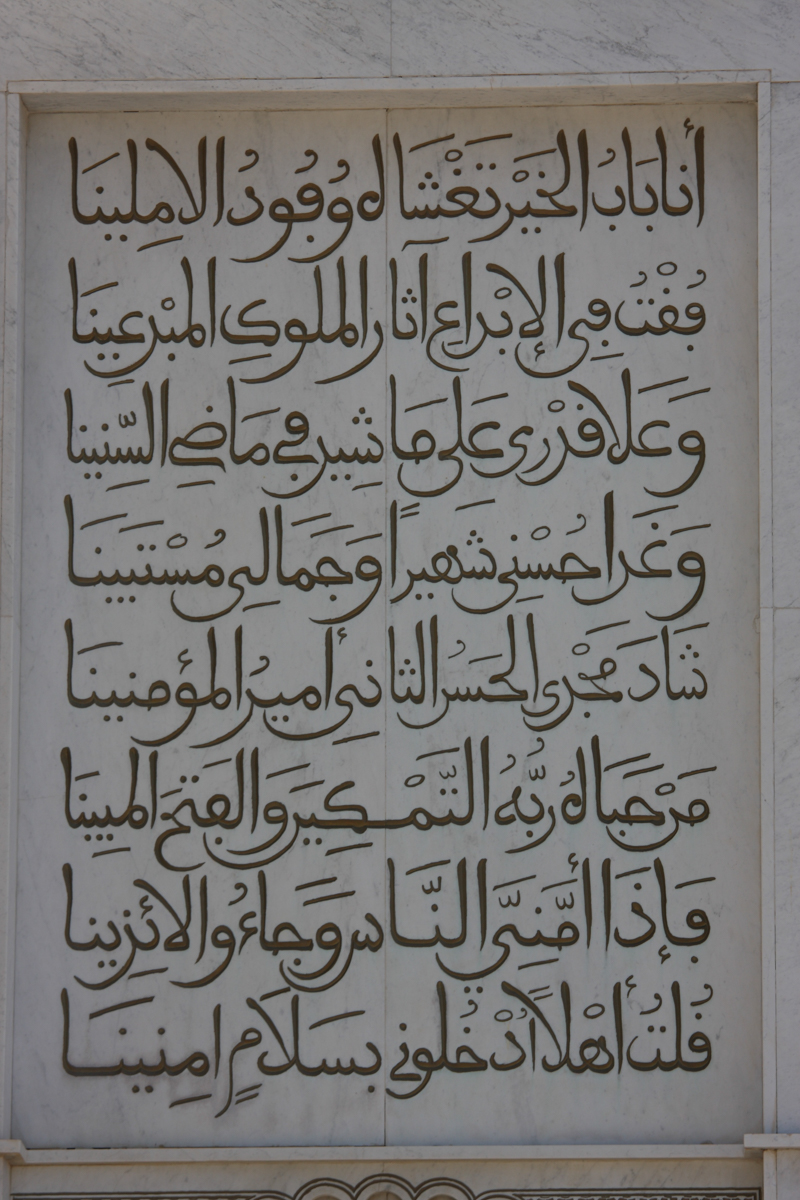 أنا بَابُ الخَيْر تَغْشَاه وُفُودُ الامِلينَا
فُقْتُ فِي الإبْدَاعِ آثار الملُوكِ المبْدِعينَا
وَعَلا قَدْرِي عَلى مَا شِيدَ في مَاضِي السّنِينا
وَغَدَا حُسْنِي شَهيراً وَجَمالِي مُسْتَبينَا
شَادَ مَجْدِي الحَسَنُ الثانِي أميرُ المؤمنينَا
مَنْ حَبَاهُ رَبُّهُ التَّمْكِينَ والفَتْحَ المبِينَا
فَإذَا أمَّنِيَ النَّاس وَجَاءُوا لائِذِينا
قُلْتُ أهْلاً ادْخُلونِي بسَلَامٍ امِنِينَا